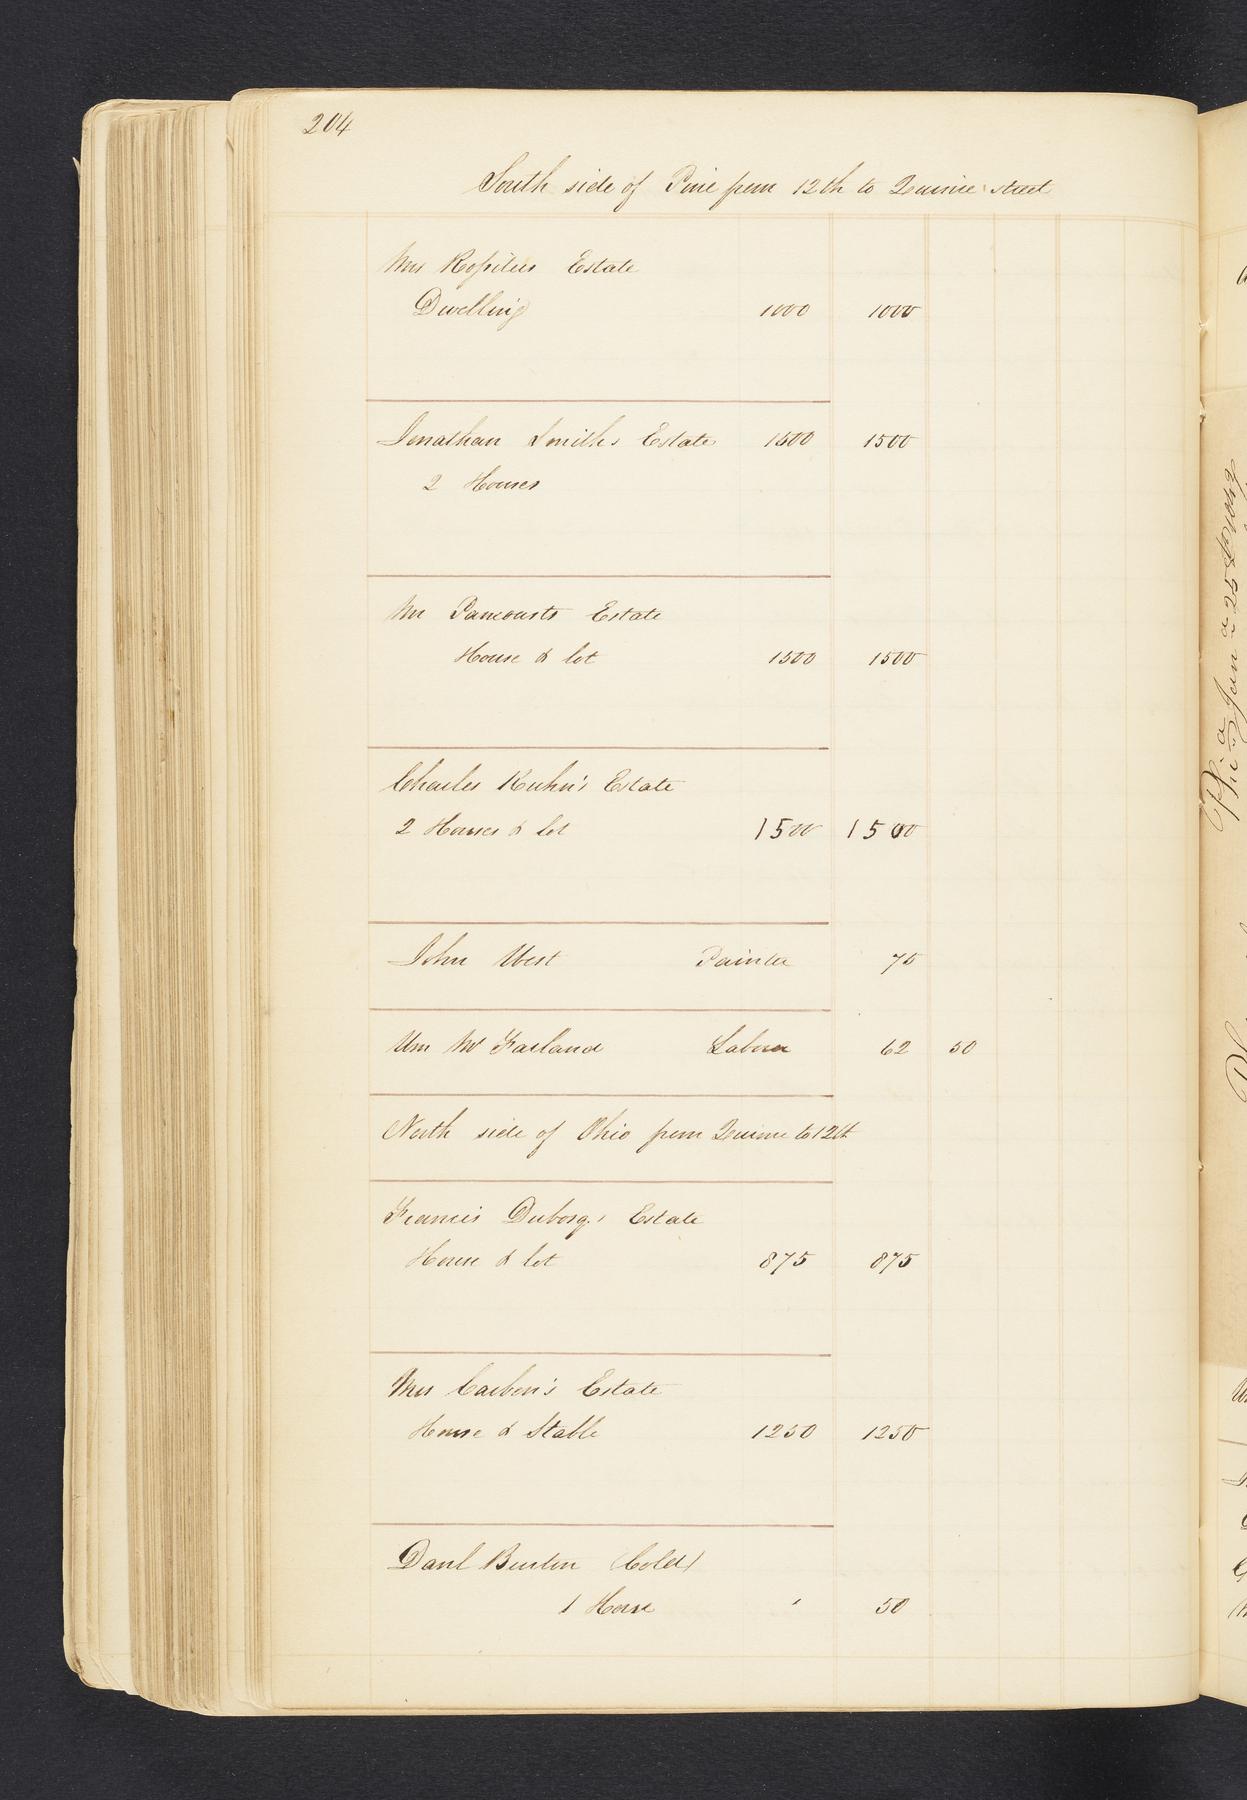 204
South side of Pine from 12th to Quince street
Mrs Rossiters Estate
Dwelling 1000 1000
Jonathan Smiths Estate 1500 1500
2 Houses
Mr Pancoasts Estate
House & lot 1500 1500
Charles Kuhn's Estate
2 Houses & lot 1500 1500
John West Painter 75
Wm McFarland Laborer 62 50
North side of Ohio from Quince to 12th
Francis Duborgs Estate
House & lot 875 875
Mrs Carben's Estate
House & Stable 1250 1250
Danl Burton (Cold)
1 Horse " 50